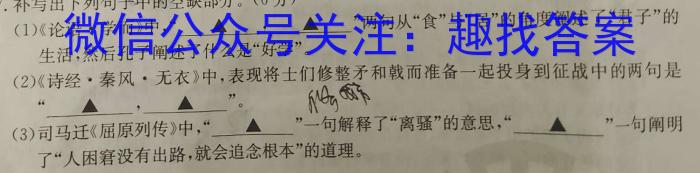 补写出下列句子中的空缺部分。(6分)
(1)《论语·学而》中,“▲,▲”两句从“食”“居”的角度阐述了“君子”的
微信公众号关注：趣找答案
生活,然后孔子阐述了什么是“好学”
(2)《诗经·秦风·无衣》中,表现将士们修整矛和戟而准备一起投身到征战中的两句是
“▲,▲”。
(3)司马迁《屈原列传》中,“▲”一句解释了“离骚”的意思,“▲”一句阐明
了“人困窘没有出路,就会追念根本”的道理。